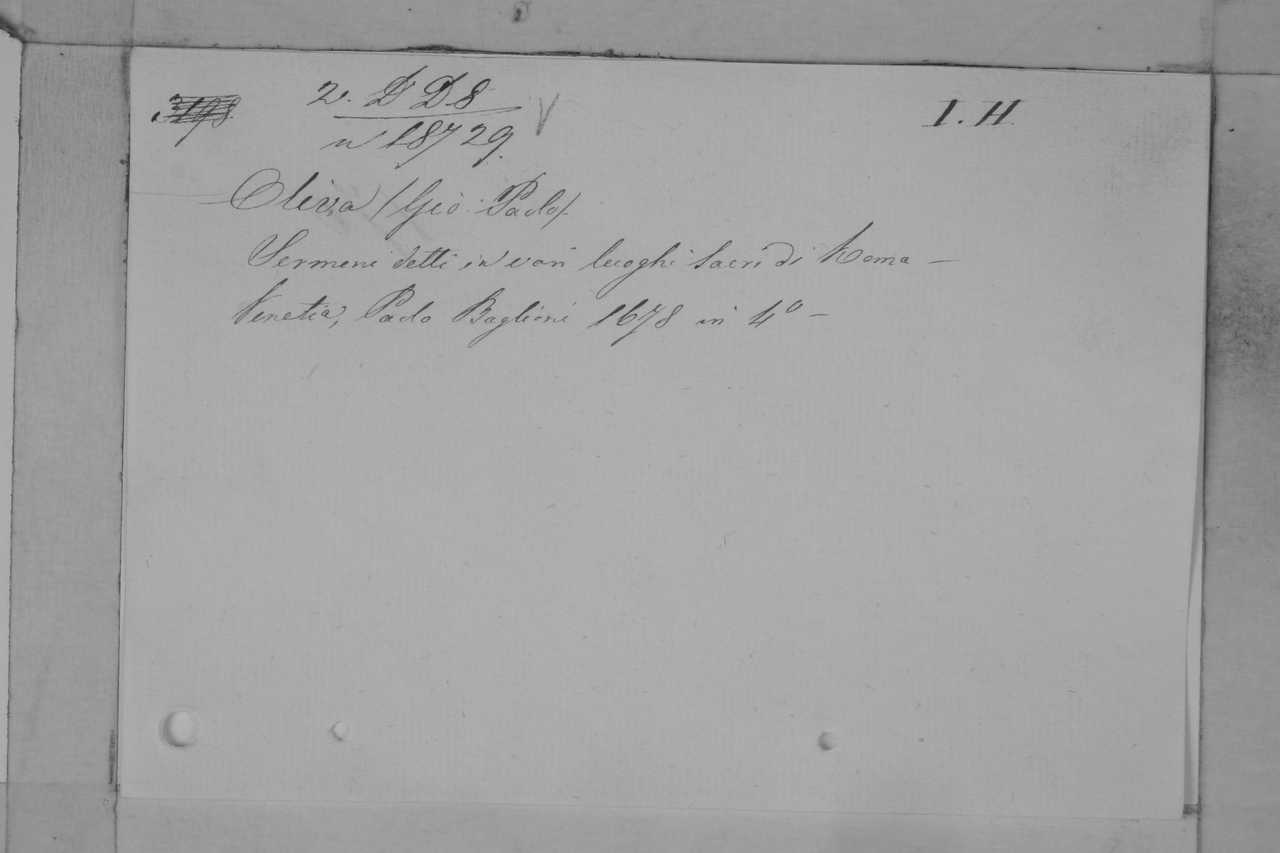 2. D D 8 V I. H
n 18729.
Oliva /Gio: Paolo/.
Sermoni detti in varî luoghi sacri di Roma —
Venetia, Paolo Baglioni 1678 in 4° —